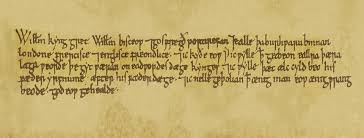 Willm kyng gret Willm bisceop ⁊ gosfregð portirefan ⁊ ealle þa burhwaru binnan
londone frencisce ⁊ englisce freondlice · ⁊ ic kyðe eow ꝥ ic wylle ꝥ get beon eallra þæra
laga weorðe þe gyt wæran on eadwerdes dæge kynges · ⁊ ic wylle ꝥ ælc cyld beo his
fæder yrfnume · æfter his fæder dæge · ⁊ ic nelle geþolian ꝥ ænig man eow ænig wrang
beode · god eow gehealde ·